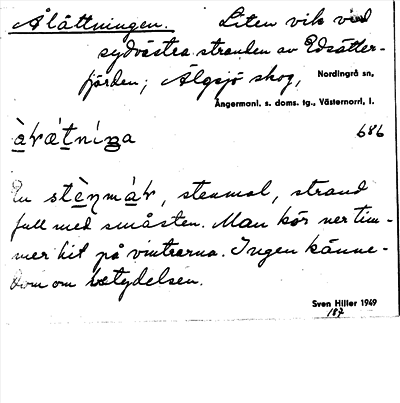 Ålåttningen. Liten vik vid
sydvästra stranden av Edsätter-
fjärden; Älgsjö skog, Nordingrå sn,
Ångermanl. s. doms. tg., Västernorrl, l.
686
En , stenmal, strand
full med småsten. Man kör ner tim-
mer hit på vintrarna. Ingen känne-
dom om betydelsen.
Sven Hiller 1949
187